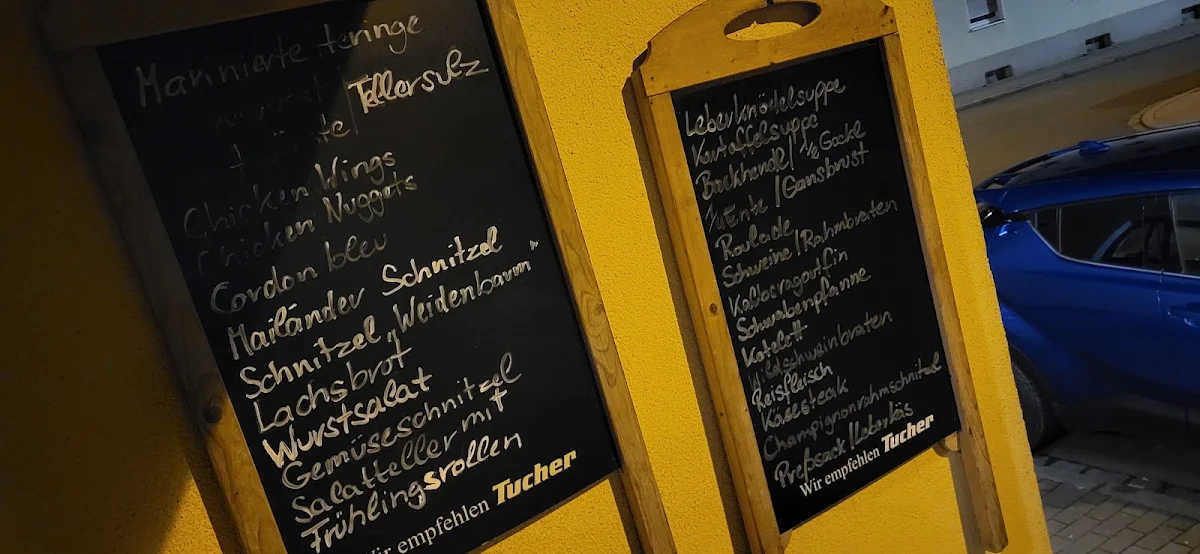 Marinierte Heringe
wurst
te/Tellersulz
Chicken Wings
Chicken Nuggets
Cordon bleu
Mailänder Schnitzel
Schnitzel „Weidenbaum"
Lachsbrot
Wurstsalat
Gemüseschnitzel
Salatteller mit
Frühlingsrollen
Wir empfehlen Tucher
Leberknödelsuppe
Kartoffelsuppe
Backhendl/ ½ Gockl
¼ Ente /Gansbrust
Roulade
Schweine/Rahmbraten
Kalbsragoutfin
Schwabenpfanne
Kotelett
Wildschweinbraten
Reisfleisch
Käsesteak
Champignonrahmschnitzel
Preßsack/Leberkäs
Wir empfehlen Tucher